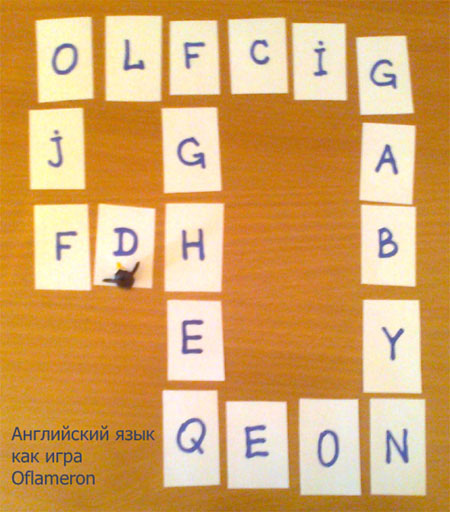 O L F C İ G
J G A
F D H B
E Y
Q E O N
Английский язык
как игра
Oflameron